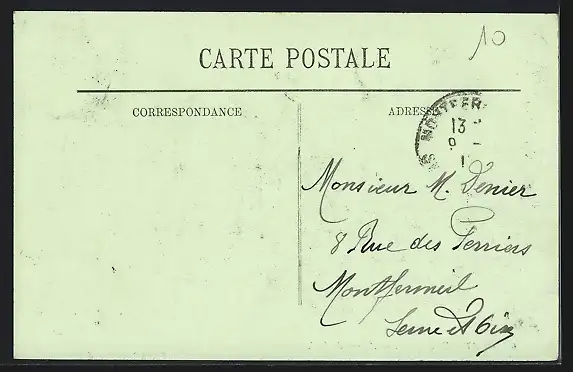 10
CARTE POSTALE
CORRESPONDANCE
ADRESSE
MONTFER
13
9
1
Monsieur M. Denier
8 Rue des Perriers
Montfermeil
Seine et Oise